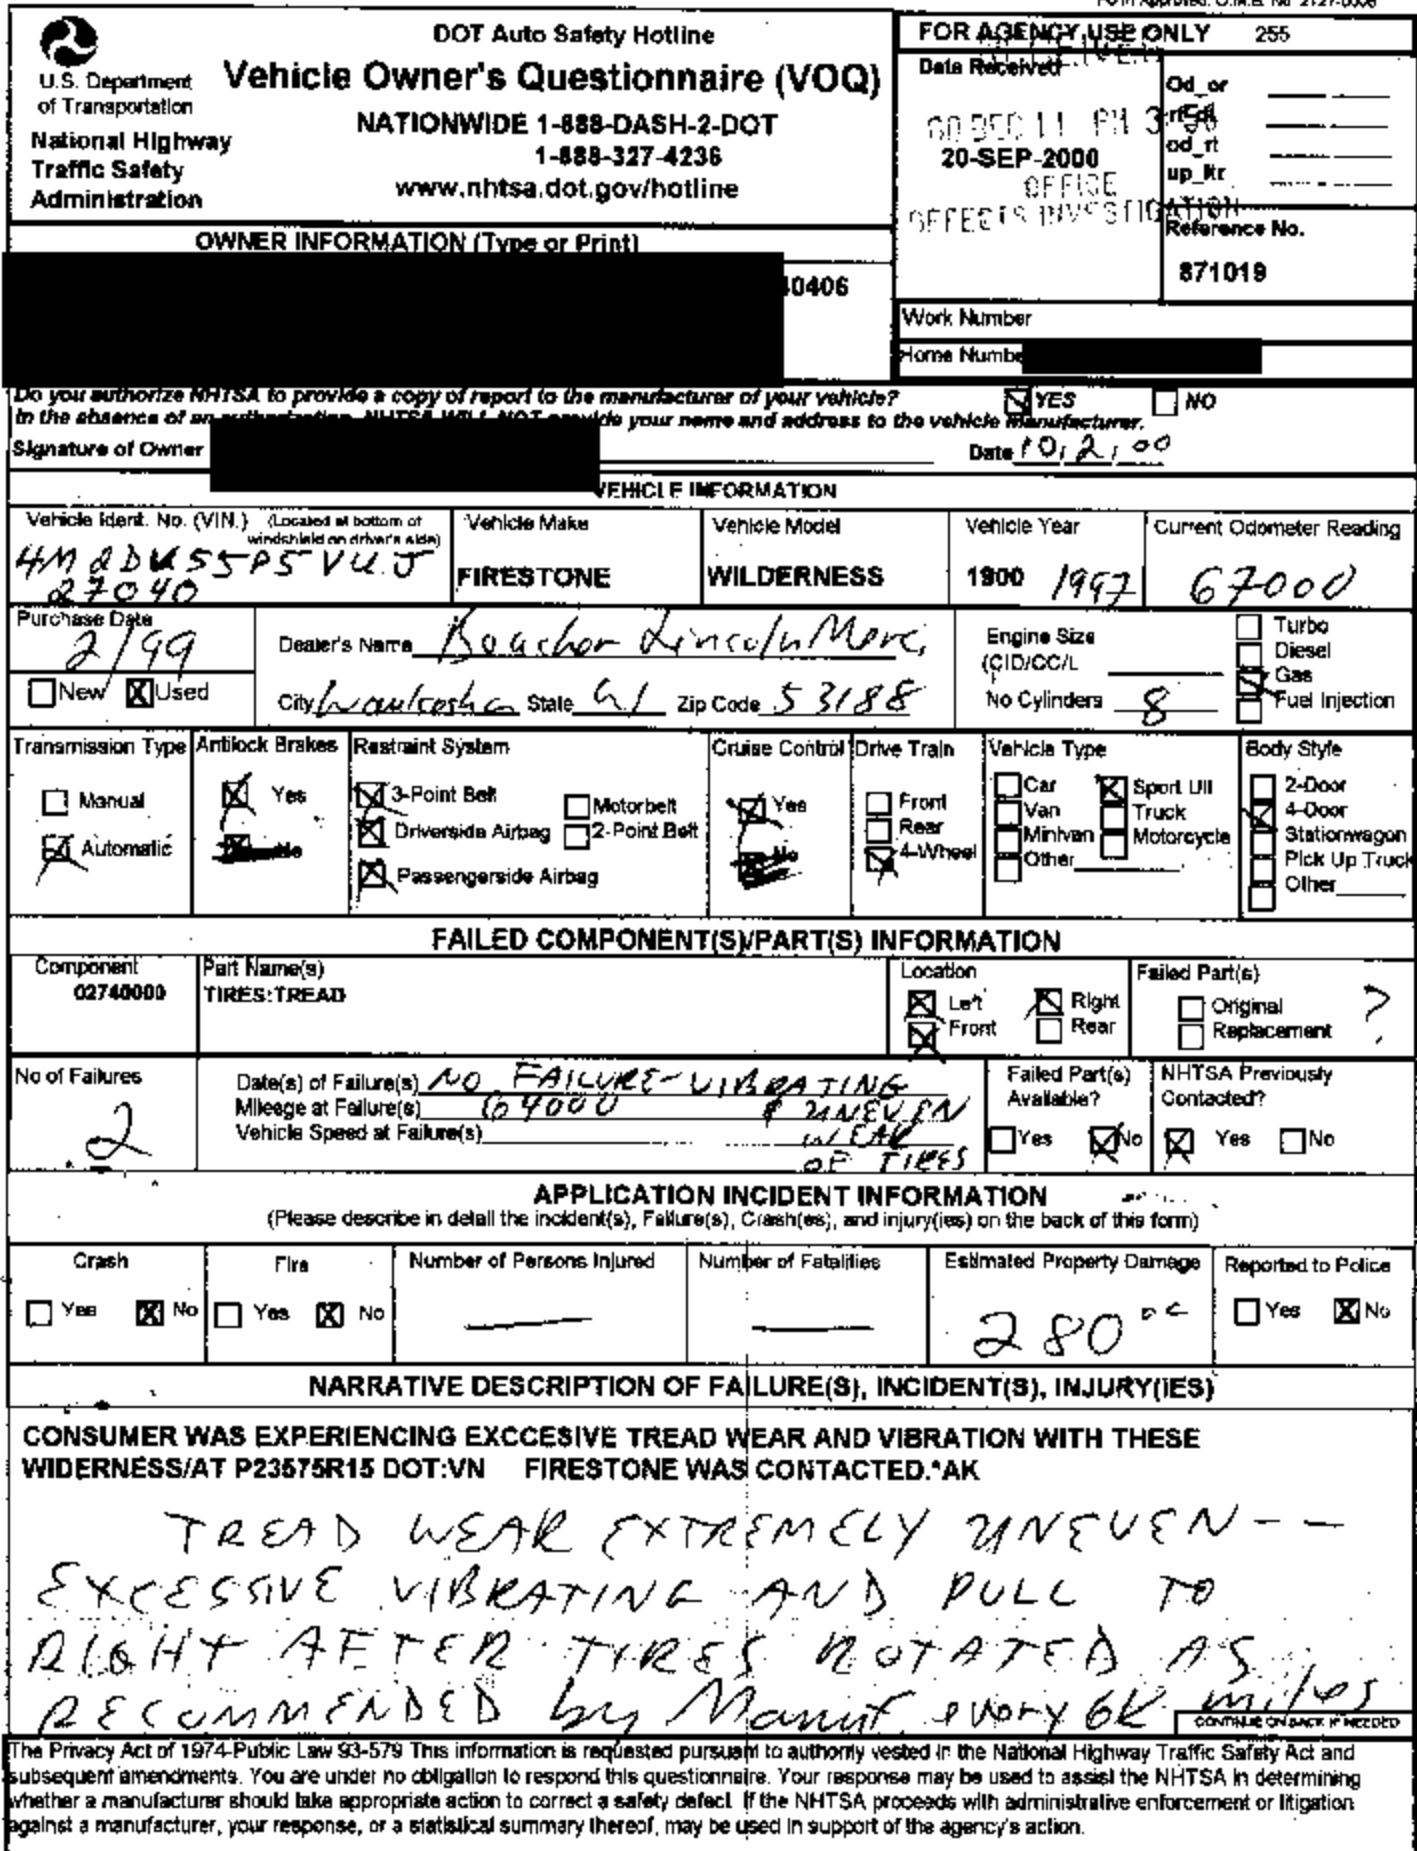 Form Approved: O.M.B. No 2127-0008
U.S. Department
of Transportation
National Highway
Traffic Safety
Administration
DOT Auto Safety Hotline
Vehicle Owner's Questionnaire (VOQ)
NATIONWIDE 1-888-DASH-2-DOT
1-888-327-4236
www.nhtsa.dot.gov/hotline
FOR AGENCY USE ONLY 255
Date Received
00 DEC 11 PM
20-SEP-2000
OFFICE
DEFECTS INVESTIGATION
Od_or
od_rt
up_ltr
Reference No.
871019
OWNER INFORMATION (Type or Print)
40406
Work Number
Home Numbe
Do you authorize NHTSA to provide a copy of report to the manufacturer of your vehicle? YES NO
In the absence of an authorization, NHTSA WILL NOT provide your name and address to the vehicle manufacturer.
Signature of Owner Date 10,2,00
VEHICLE INFORMATION
Vehicle Ident. No. (VIN.) (Located at bottom of
windshield on driver's side)
4M2DU55P5VUJ
27040
Vehicle Make
FIRESTONE
Vehicle Model
WILDERNESS
Vehicle Year
1900 1997
Current Odometer Reading
67000
Purchase Date
2/99
New Used
Dealer's Name Lincoln Merc,
City Waukesha State WI Zip Code 53188
Engine Size
(CID/CC/L
No Cylinders 8
Turbo
Diesel
Gas
Fuel Injection
Transmission Type
Manual
Automatic
Antilock Brakes
Yes
No
Restraint System
3-Point Belt
Driverside Airbag
Passengerside Airbag
Motorbelt
2-Point Belt
Cruise Control
Yes
No
Drive Train
Front
Rear
4-Wheel
Vehicle Type
Car
Van
Minivan
Other
Sport Util
Truck
Motorcycle
Body Style
2-Door
4-Door
Stationwagon
Pick Up Truck
Other
FAILED COMPONENT(S)/PART(S) INFORMATION
Component
02740000
Part Name(s)
TIRES:TREAD
Location
Left Right
Front Rear
Failed Part(s)
Original
Replacement
?
No of Failures
2
Date(s) of Failure(s) NO FAILURE-VIBRATING
Mileage at Failure(s) 64000 & UNEVEN
Vehicle Speed at Failure(s) WEAR
OF TIRES
Failed Part(s)
Available?
Yes No
NHTSA Previously
Contacted?
Yes No
APPLICATION INCIDENT INFORMATION
(Please describe in detail the incident(s), Failure(s), Crash(es), and injury(ies) on the back of this form)
Crash
Yes No
Fire
Yes No
Number of Persons Injured
—
Number of Fatalities
—
Estimated Property Damage
280 00
Reported to Police
Yes No
NARRATIVE DESCRIPTION OF FAILURE(S), INCIDENT(S), INJURY(IES)
CONSUMER WAS EXPERIENCING EXCCESIVE TREAD WEAR AND VIBRATION WITH THESE
WIDERNESS/AT P23575R15 DOT:VN FIRESTONE WAS CONTACTED.*AK
TREAD WEAR EXTREMELY UNEVEN--
EXCESSIVE VIBRATING AND PULL TO
RIGHT AFTER TIRES ROTATED AS
RECOMMENDED by Manuf. every 6K miles
CONTINUE ON BACK IF NEEDED
The Privacy Act of 1974-Public Law 93-579 This information is requested pursuant to authority vested in the National Highway Traffic Safety Act and
subsequent amendments. You are under no obligation to respond this questionnaire. Your response may be used to assist the NHTSA in determining
whether a manufacturer should take appropriate action to correct a safety defect. If the NHTSA proceeds with administrative enforcement or litigation
against a manufacturer, your response, or a statistical summary thereof, may be used in support of the agency's action.